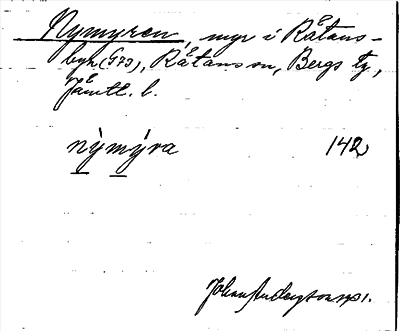 Nymyren, myr i Råtans-
byn (G73), Råtans sn, Bergs tg,
Jämtl. l.
nỳmýra 142
Johan Anderson 1901.